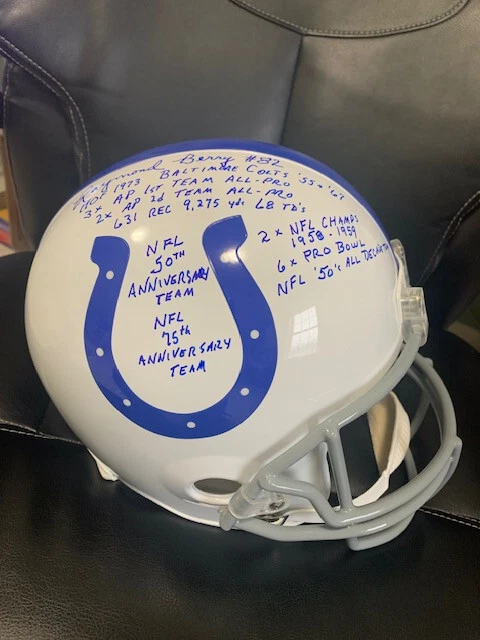 Raymond Berry #82
HOF 1973 BALTIMORE COLTS '55-'67
3x AP 1ST TEAM ALL-PRO
2x AP 2d TEAM ALL-PRO
631 REC 9,275 yds 68 TD's
2 x NFL CHAMPS
1958-1959
6 x PRO BOWL
NFL '50's ALL DECADE
NFL
50TH
ANNIVERSARY
TEAM
NFL
75th
ANNIVERSARY
TEAM